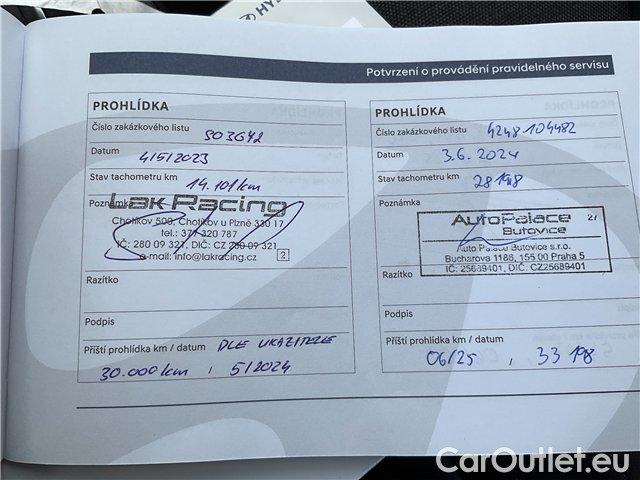 HY
Potvrzení o provádění pravidelného servisu
PROHLÍDKA
Číslo zakázkového listu SO3642
Datum 4/5/2023
Stav tachometru km 14.101 km
Poznámka
Lak Racing
Chotíkov 508, Chotíkov u Plzně 330 17
tel.: 377 320 787
IČ: 280 09 321, DIČ: CZ 280 09 321
e-mail: info@lakracing.cz 2
Razítko
Podpis
Příští prohlídka km / datum DLE UKAZATELE
30.000 km , 5/2024
PROHLÍDKA
Číslo zakázkového listu 4248104482
Datum 3.6.2024
Stav tachometru km 28198
Poznámka
AutoPalace 27
Butovice
Auto Palace Butovice s.r.o.
Bucharova 1186, 155 00 Praha 5
IČ: 25689401, DIČ: CZ25689401
Razítko
Podpis
Příští prohlídka km / datum
06/25 , 33198
CarOutlet.eu